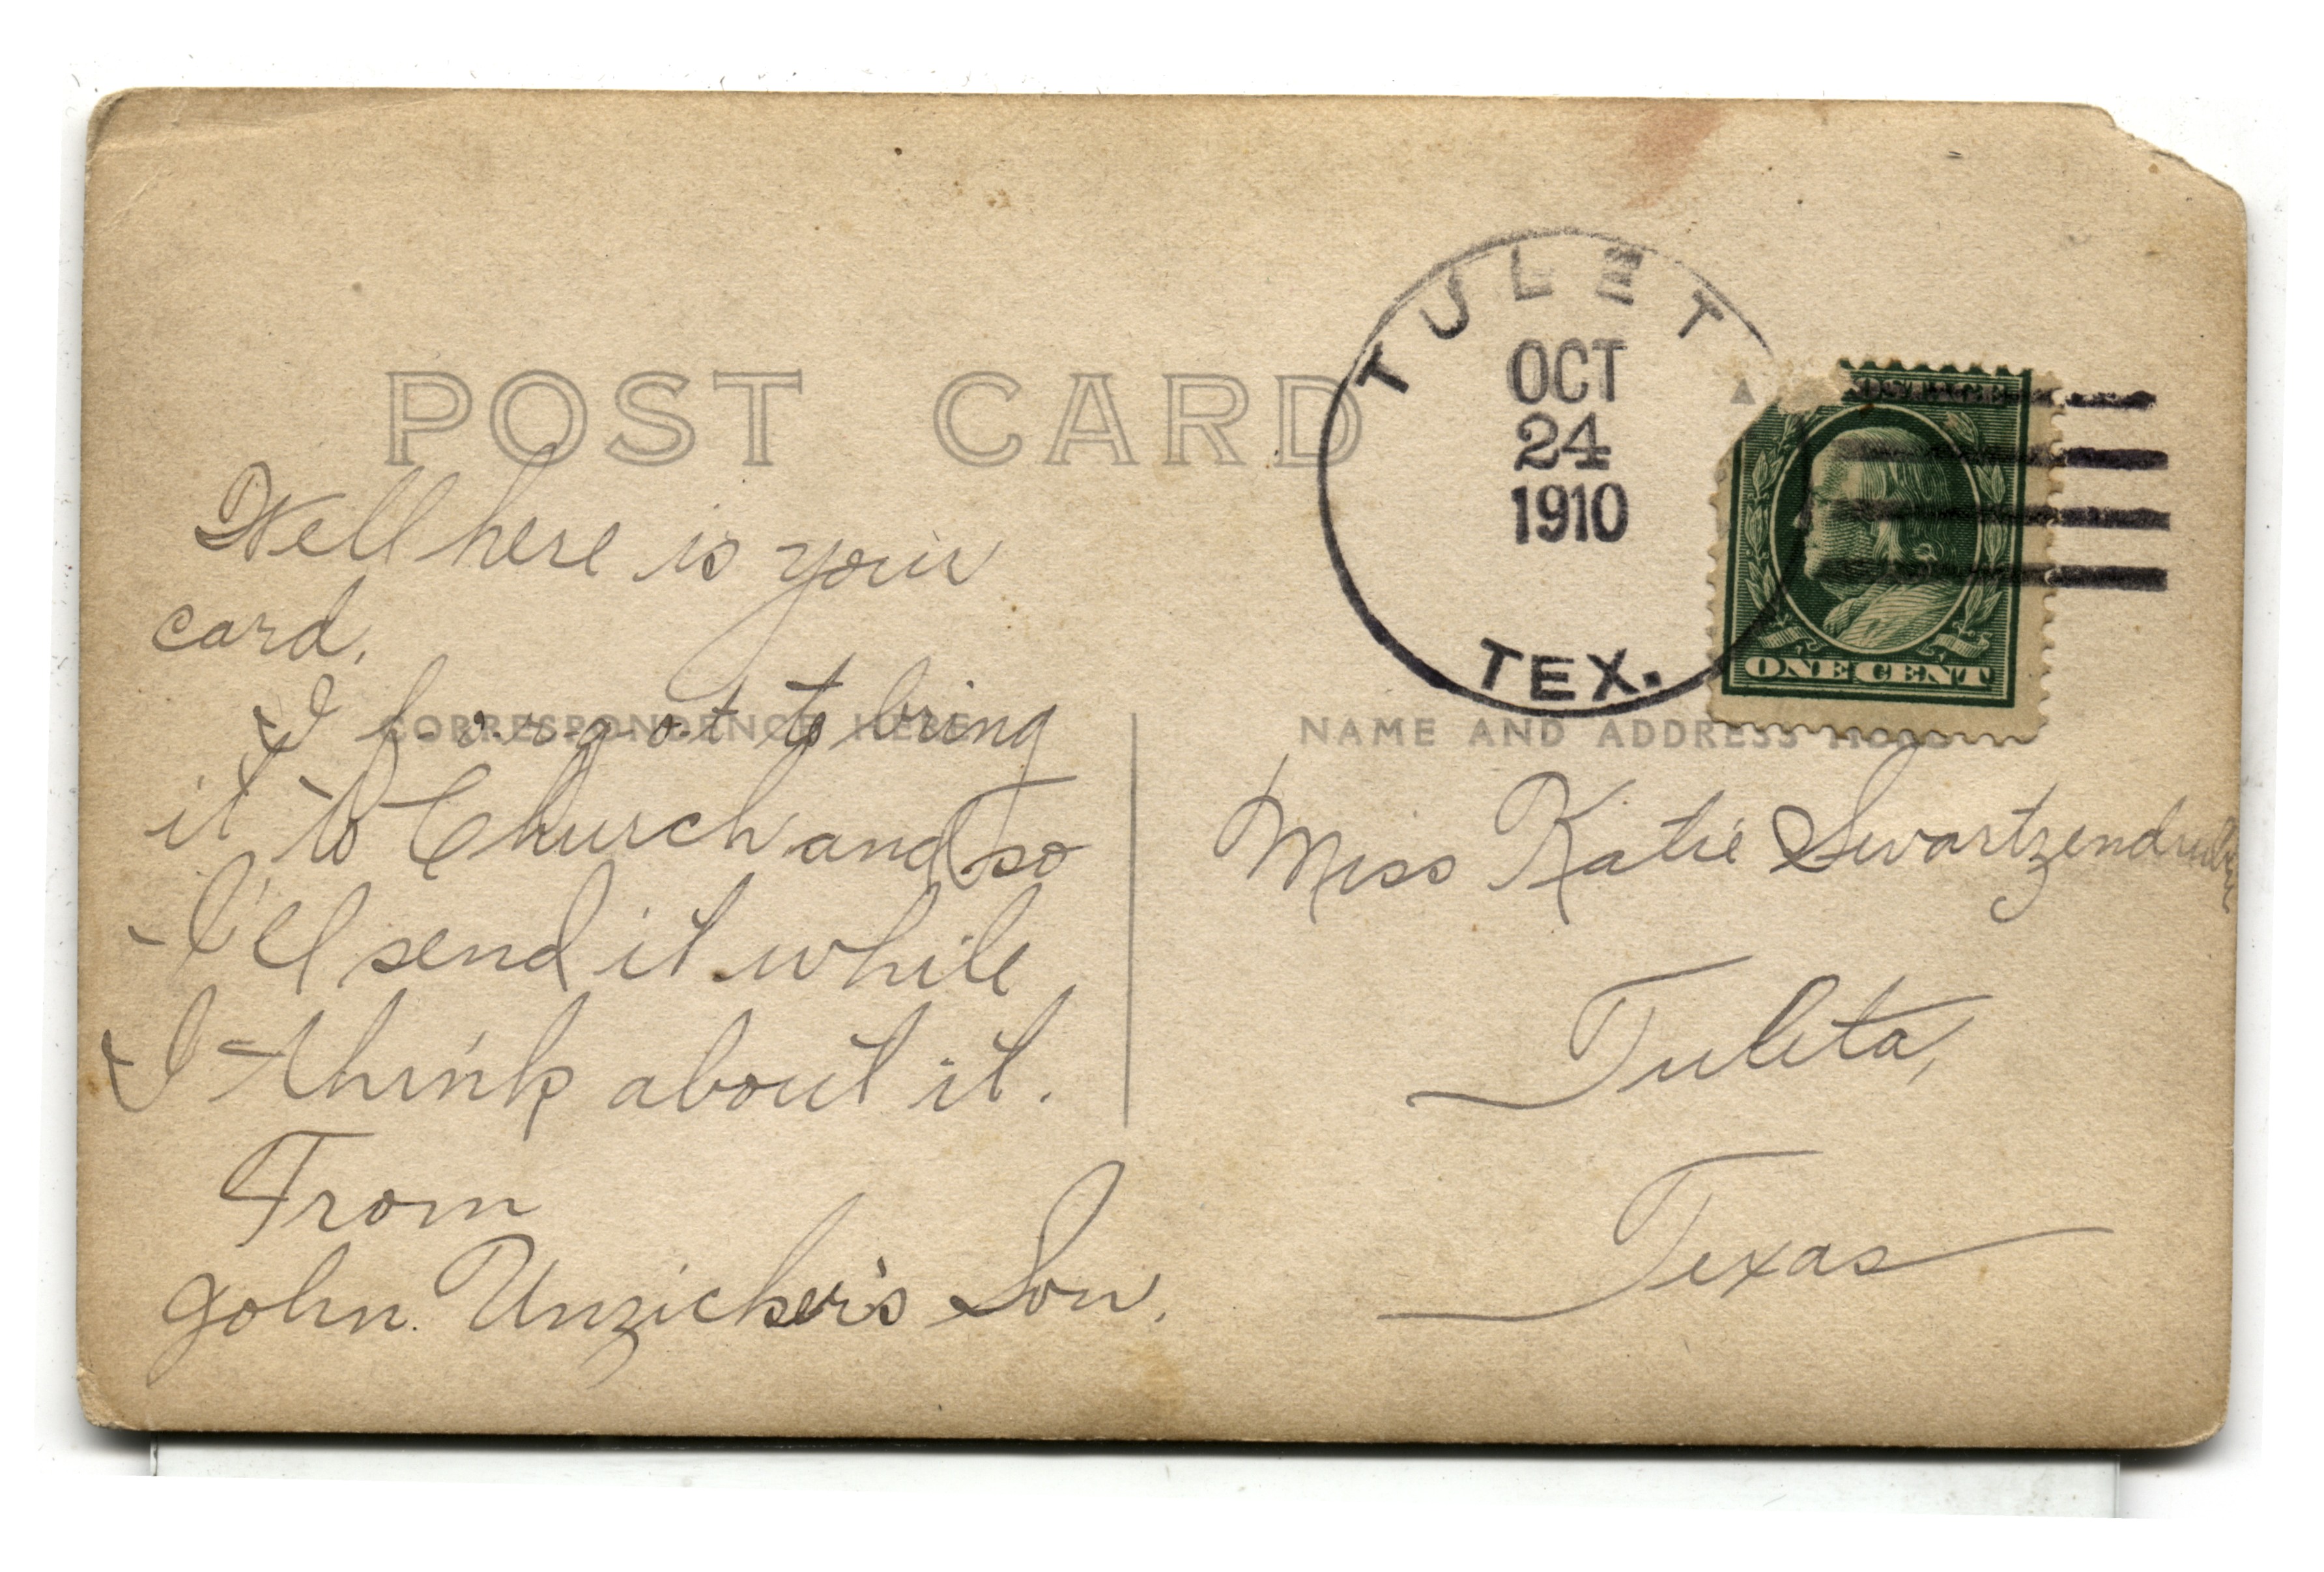 POST CARD
TULETA
OCT
24
1910
TEX.
POSTAGE
ONE CENT
CORRESPONDENCE HERE
NAME AND ADDRESS HERE
Well here is your
card.
I f-o-r-g-o-t to bring
it to Church and so
I'll send it while
I think about it.
From
John Unzicker's Son.
Miss Katie Swartzendruber
Tuleta,
Texas